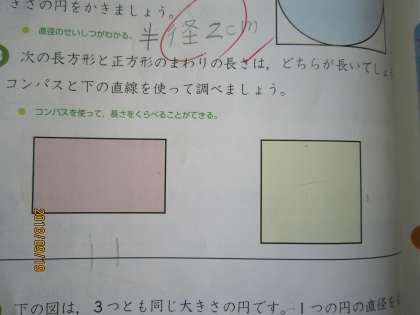 ささの円をかきましょう。
直径のせいしつがわかる。
半径2cm
次の長方形と正方形のまわりの長さは，どちらが長いでしょ
コンパスと下の直線を使って調べましょう。
コンパスを使って，長さをくらべることができる。
2013/09/19
下の図は，3つとも同じ大きさの円です。1つの円の直径を